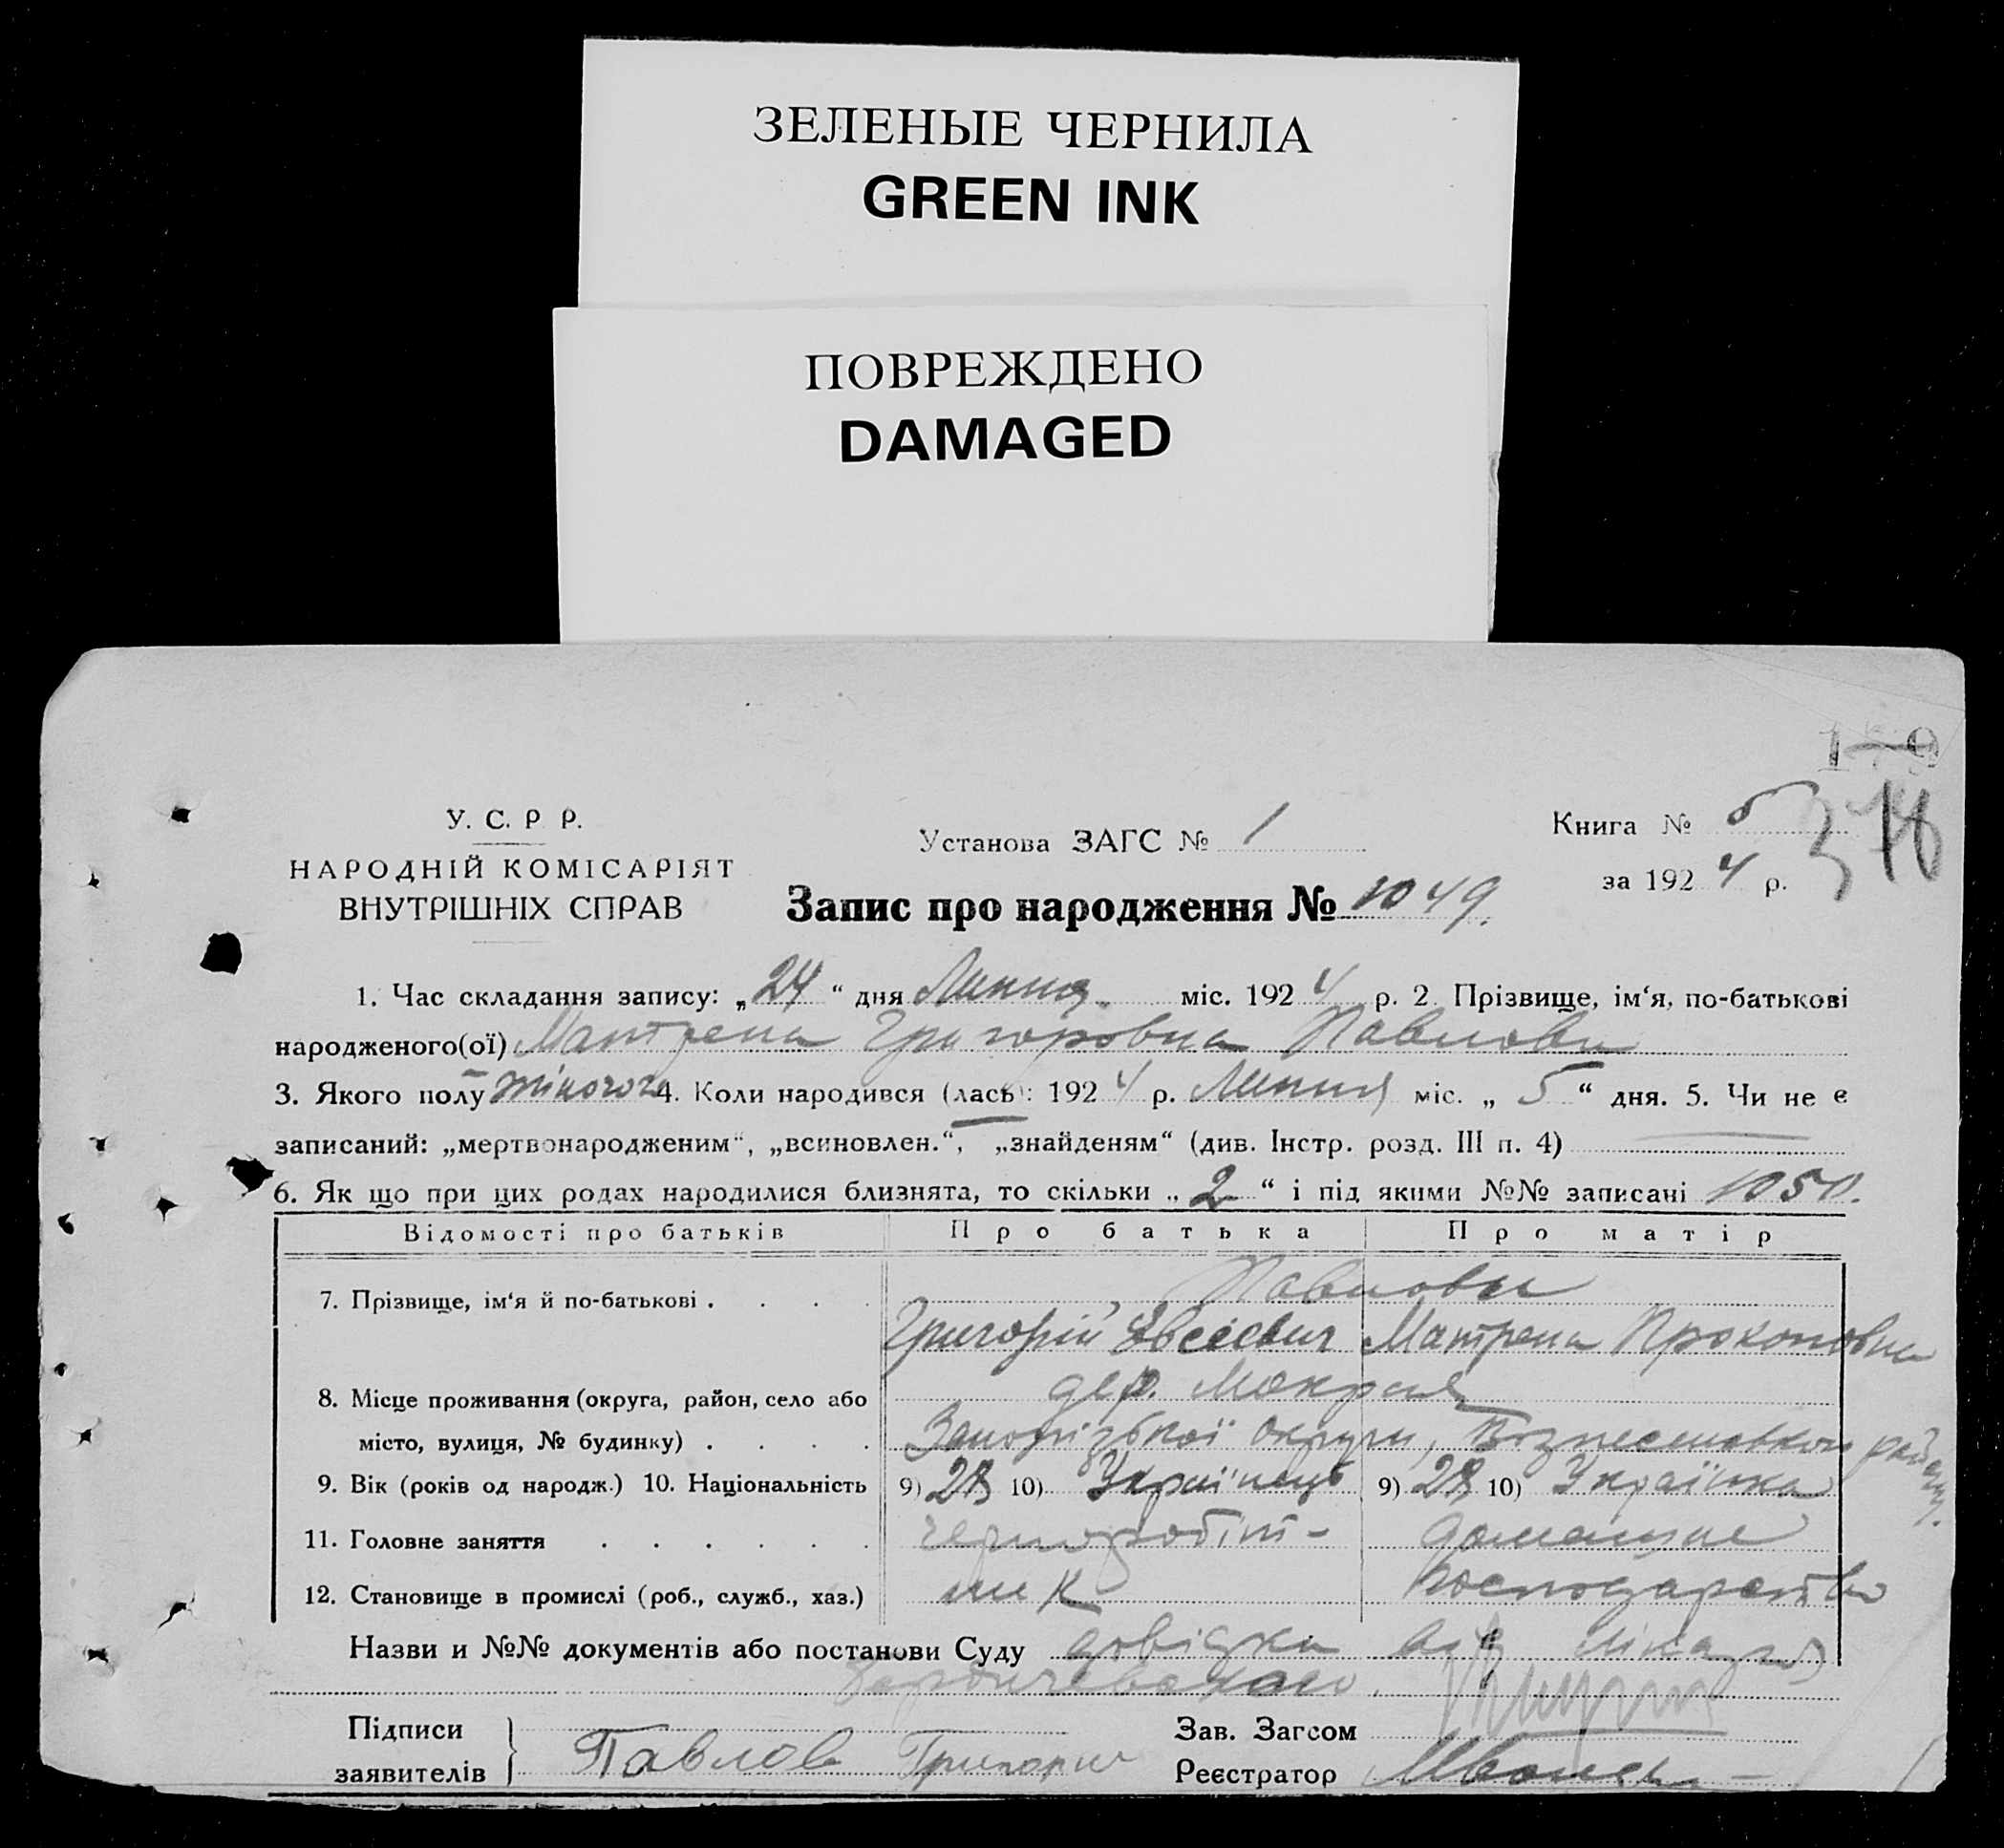 ЗЕЛЕНЫЕ ЧЕРНИЛА
GREEN INK
ПОВРЕЖДЕНО
DAMAGED
1 9
378
У. С. Р Р.
НАРОДНІЙ КОМІСАРІЯТ
ВНУТРІШНІХ СПРАВ
Установа ЗАГС № 1
Книга № 5
за 192 4 р.
Запис про народження № 1049.
1. Час складання запису: „24“ дня Липня. міс. 192 4 р. 2. Прізвище, ім‘я, по-батькові
народженого(ої) Матрена Григоровна Павлова
3. Якого полу жіночого 4. Коли народився (лась): 192 4 р. Липня міс. „ 5 “ дня. 5. Чи не є
записаний: „мертвонародженим“, „всиновлен.“, „знайденям“ (див. Інстр. розд. III п. 4)
6. Як що при цих родах народилися близнята, то скільки „ 2 “ і під якими №№ записані 1050.
Відомості про батьків Про батька Про матір
7. Прізвище, ім‘я й по-батькові . . . . Павловы
Григорій Євсієвич Матрена Прокоповна
8. Місце проживання (округа, район, село або дер. Мокрая
місто, вулиця, № будинку) . . . . Запорізької округи, Вознесенського району.
9. Вік (років од народж.) 10. Національність 9) 28 10) Українець 9) 28 10) Українка
11. Головне заняття . . . . . . черноробіт- домашнє
12. Становище в промислі (роб., служб., хаз.) ник господарство
Назви и №№ документів або постанови Суду довідка від лікаря
Підписи
заявителів Павлов Григорий
Зав. Загсом
Реєстратор